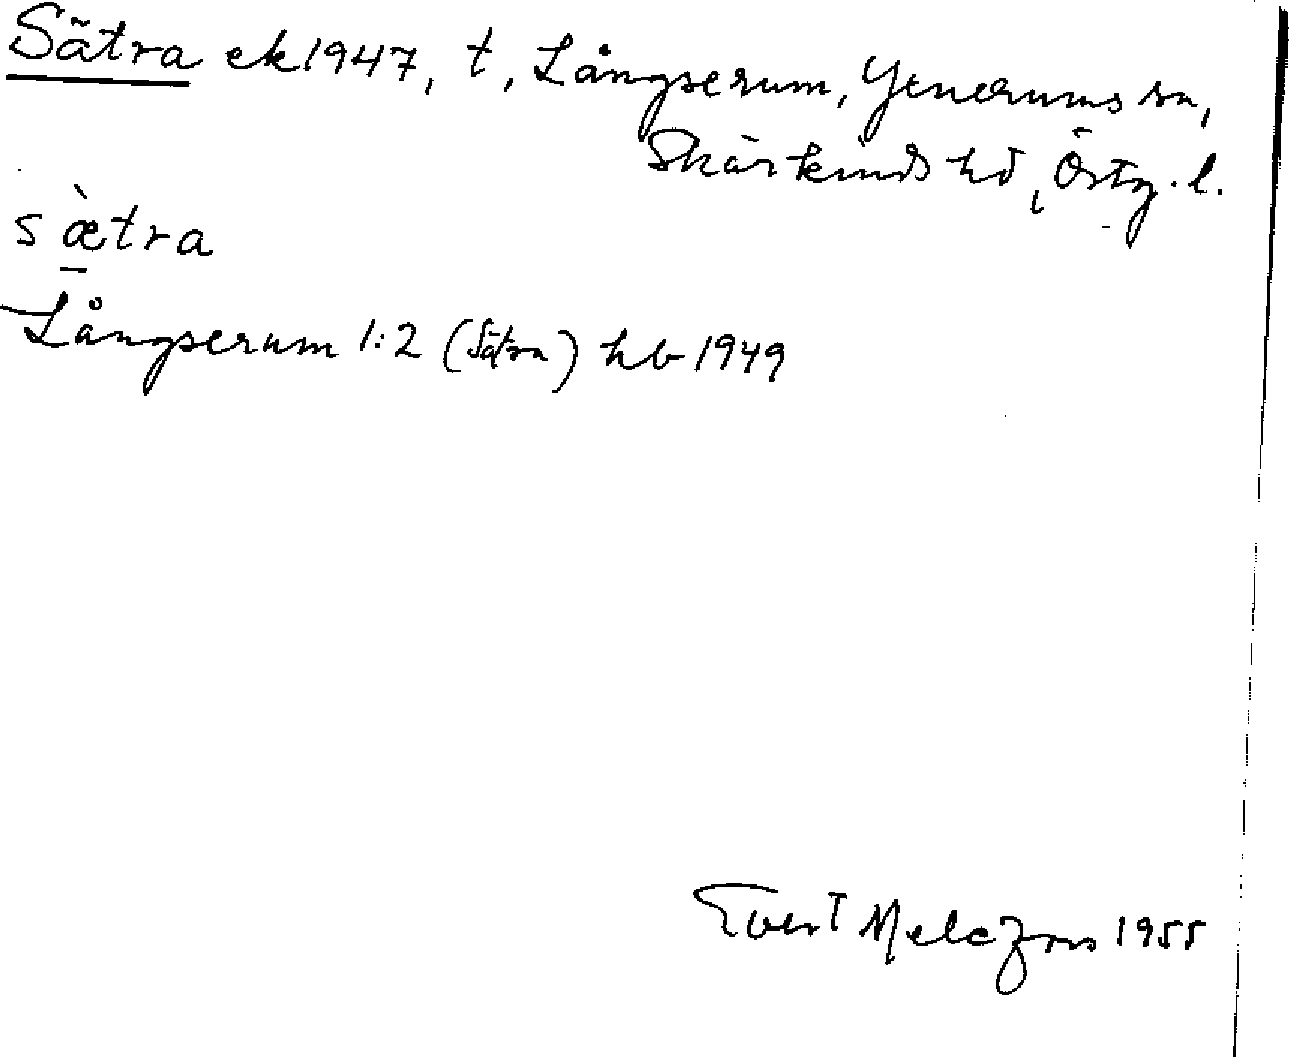 Sätra ek 1947, t, Långserum, Yxnerums sn,
Skärkinds hd, Östg. l.
sæ̀tra
Långserum 1:2 (Sätra) hb 1949
Evert Melefors 1955